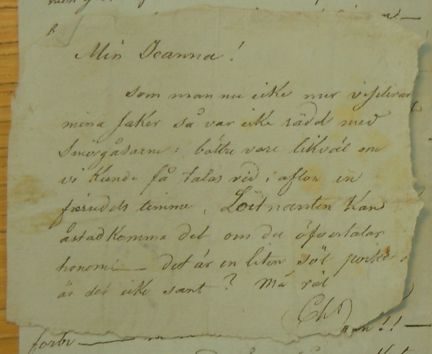 Min Joanna!
som man nu icke mer visiterar
mina saker så var icke rädd med
Smörgåsarne: bättre vore likväl om
vi kunde få talas vid i afton en
fjerndels timme. Löitnanten kan
åstadkomma det om du öfvertalar
honom — det är en liten söt
är det icke sant? Må väl